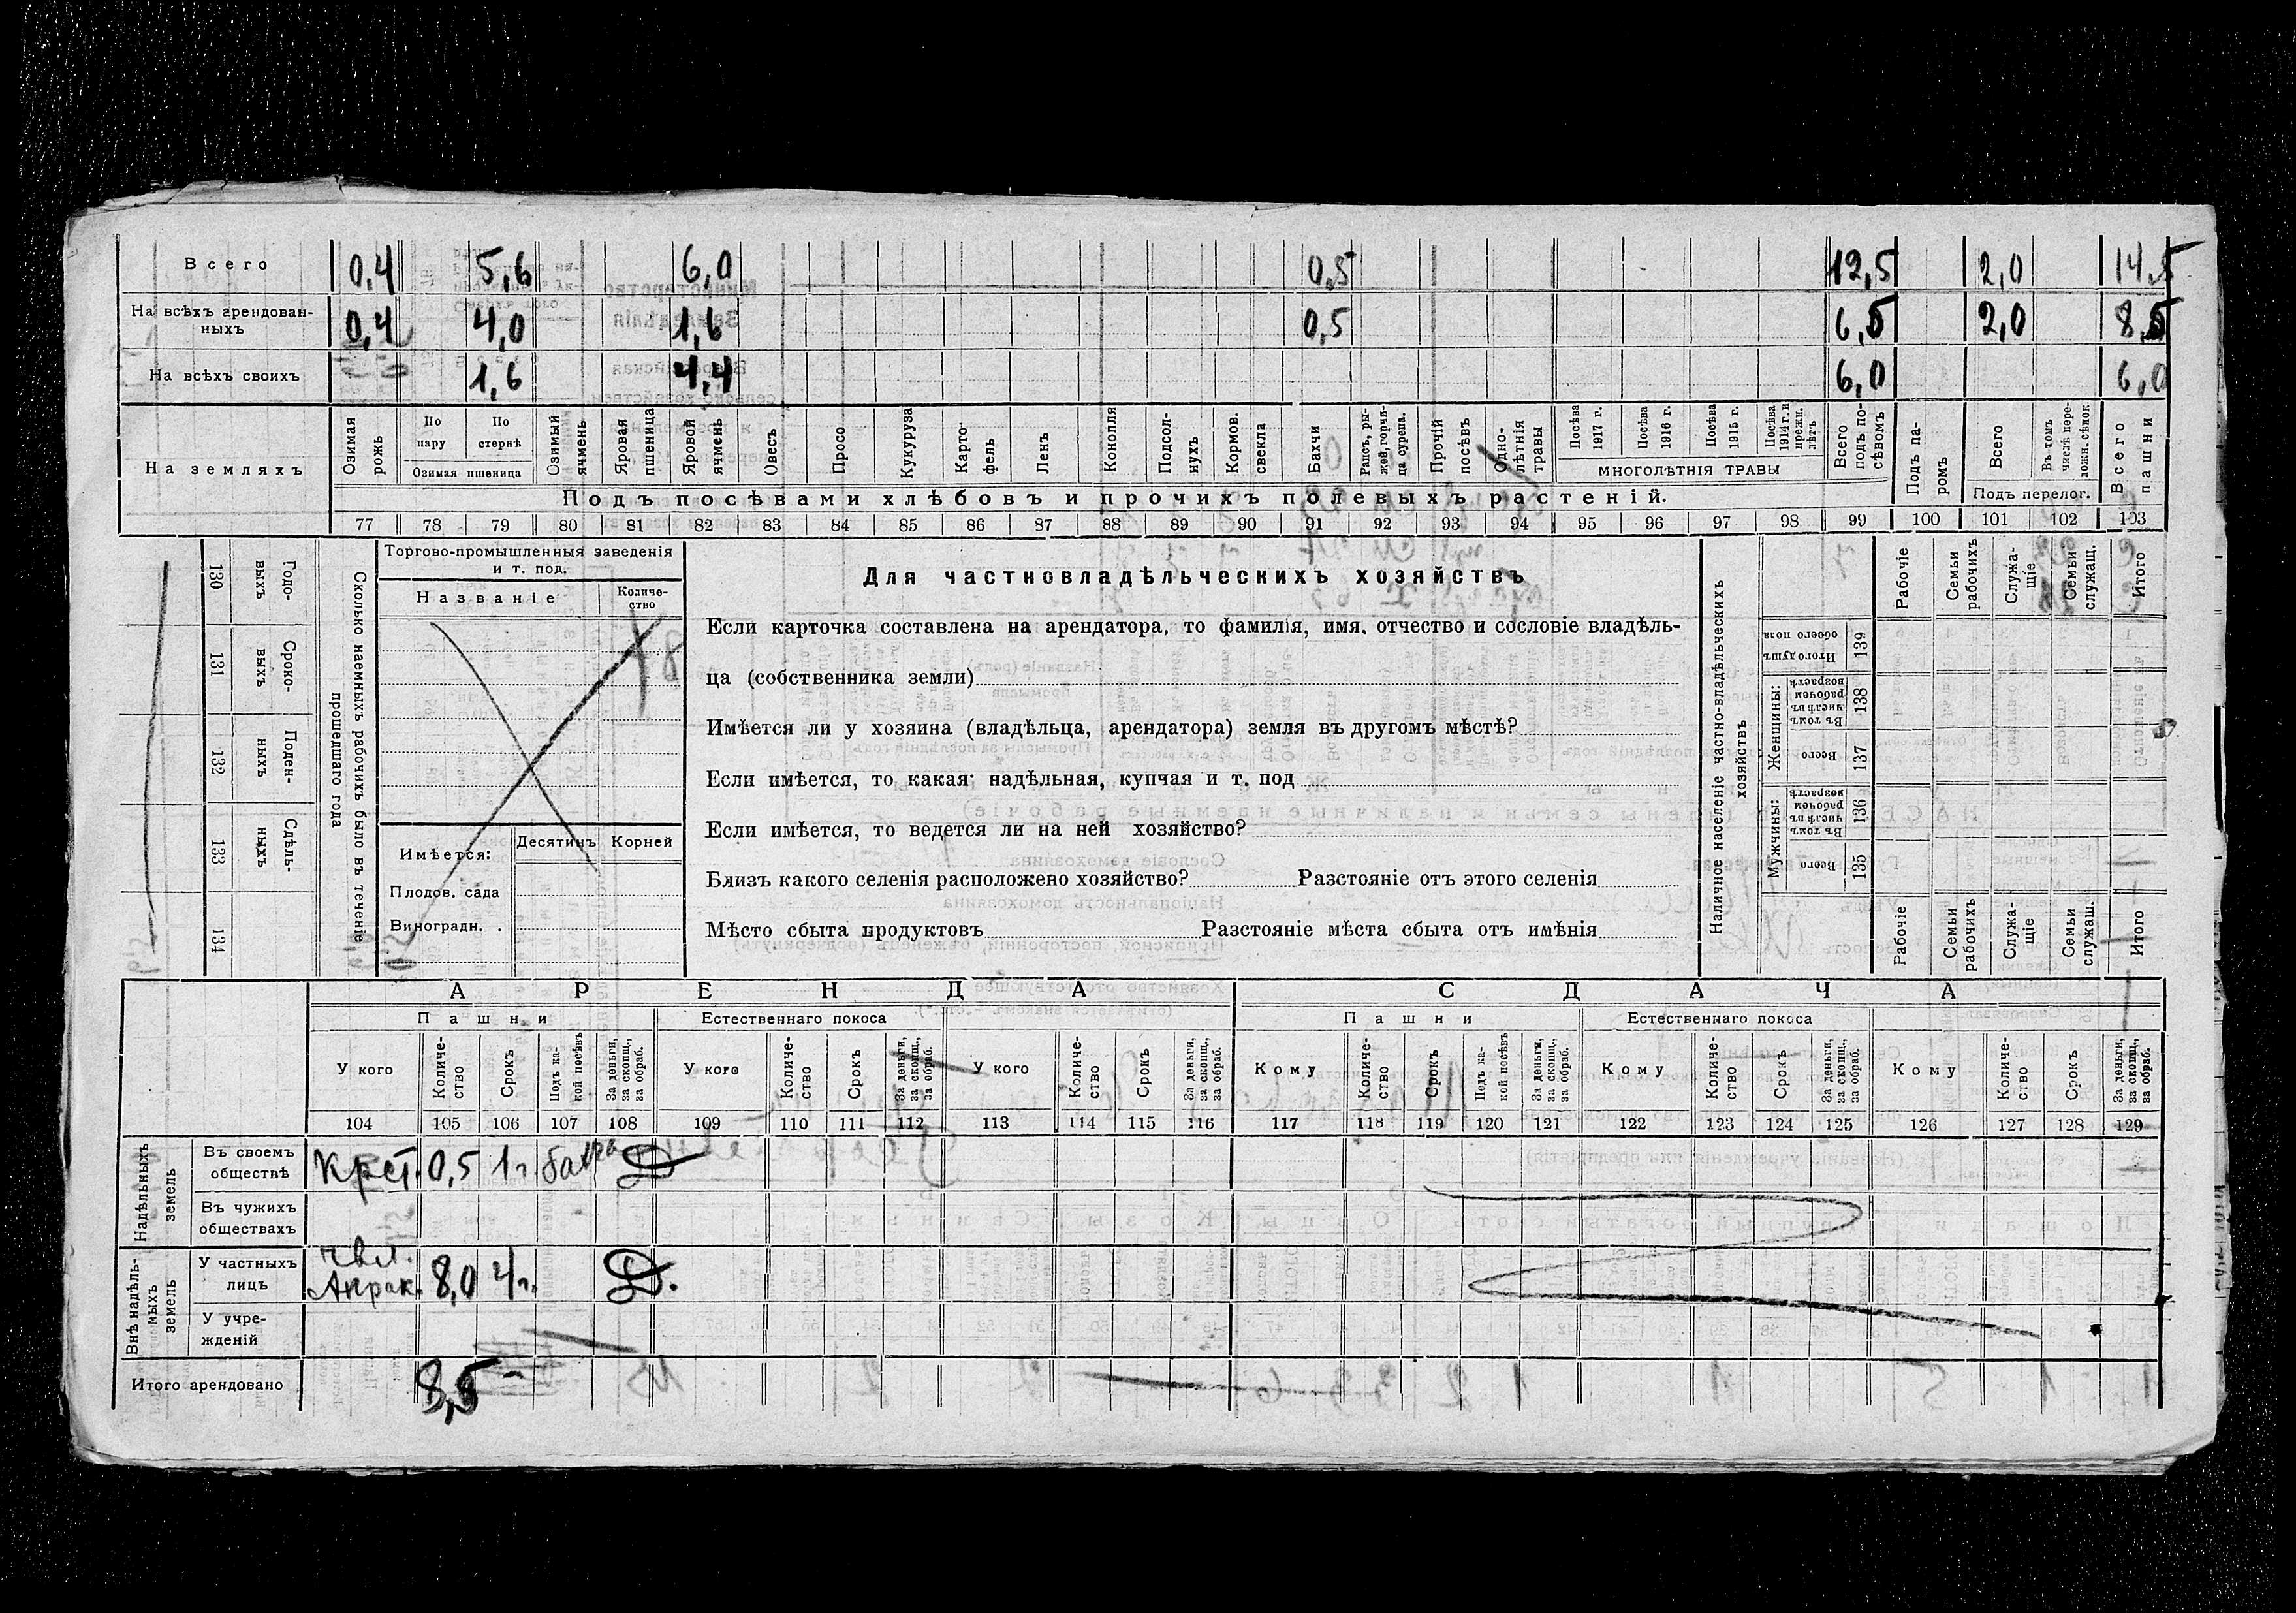 Всего 0,4 5,6 6,0 0,5 12,5 2,0 14,5
На всѣхъ арендован-
ныхъ 0,4 4,0 1,6 0,5 6,5 2,0 8,5
На всѣхъ своихъ 1,6 4,4 6,0 6,0
На земляхъ
Озимая рожь
По пару
По стернѣ
Озимая пшеница
Озимый ячмень
Яровая пшеница
Яровой ячмень
Овесъ
Просо
Кукуруза
Карто-
фель
Ленъ
Конопля
Подсол-
нухъ
Кормов. свекла
Бахчи
Рапсъ, ры-
жей, горчи-
ца сурепа.
Прочій посѣвъ
Одно-
лѣтнія травы
Посѣва 1917 г.
Посѣва 1916 г.
Посѣва 1915 г.
Посѣва 1914 г. и прежн. лѣтъ
МНОГОЛѢТНІЯ ТРАВЫ
Всего подъ по-
сѣвомъ
Подъ па-
ромъ
Всего
Въ томъ числѣ пере-
ложн. сѣнок.
Подъ перелог.
Всего пашни
Подъ посѣвами хлѣбовъ и прочихъ полевыхъ растеній.
77 78 79 80 81 82 83 84 85 86 87 88 89 90 91 92 93 94 95 96 97 98 99 100 101 102 103
130 Годо-
выхъ
131 Сроко-
выхъ
132 Поден-
ныхъ
133 Сдѣль-
ныхъ
134
Сколько наемныхъ рабочихъ было въ теченіе
прошедшаго года
Торгово-промышленныя заведенія
и т. под.
Названіе
Количе-
ство
Имѣется:
Десятинъ Корней
Плодов. сада
Виноградн. .
Для частновладѣльческихъ хозяйствъ
Если карточка составлена на арендатора, то фамилія, имя, отчество и сословіе владѣль-
ца (собственника земли)
Имѣется ли у хозяина (владѣльца, арендатора) земля въ другомъ мѣстѣ?
Если имѣется, то какая: надѣльная, купчая и т. под
Если имѣется, то ведется ли на ней хозяйство?
Близъ какого селенія расположено хозяйство? Разстояніе отъ этого селенія
Мѣсто сбыта продуктовъ Разстояніе мѣста сбыта отъ имѣнія
Наличное населеніе частно-владѣльческихъ
хозяйствъ
Рабочіе
Семьи рабочихъ
Служа-
щіе
Семьи служащ.
Итого
Итого душъ обоего пола 139
Женщины:
Въ томъ числѣ въ рабочемъ возрастѣ 138
Всего 137
Мужчины:
Въ томъ числѣ въ рабочемъ возрастѣ 136
Всего 135
Рабочіе
Семьи рабочихъ
Служа-
щіе
Семьи служащ.
Итого
АРЕНДА СДАЧА
Пашни Естественнаго покоса Пашни Естественнаго покоса
У кого
Количе-
ство
Срокъ
Подъ ка-
кой посѣвъ
За деньги, за скопщ., за обраб.
У кого
Количе-
ство
Срокъ
За деньги, за скопщ., за обраб.
У кого
Количе-
ство
Срокъ
За деньги, за скопщ., за обраб.
Кому
Количе-
ство
Срокъ
Подъ ка-
кой посѣвъ
За деньги, за скопщ., за обраб.
Кому
Количе-
ство
Срокъ
За деньги, за скопщ., за обраб.
Кому
Количе-
ство
Срокъ
За деньги, за скопщ., за обраб.
104 105 106 107 108 109 110 111 112 113 114 115 116 117 118 119 120 121 122 123 124 125 126 127 128 129
Надѣльныхъ земель
Въ своемъ
обществѣ Крст. 0,5 1 г. Д
Въ чужихъ
обществахъ
Внѣ надѣль-
ныхъ земель
У частныхъ
лицъ 8,0 4 г. Д.
У учре-
жденій
Итого арендовано 8,5